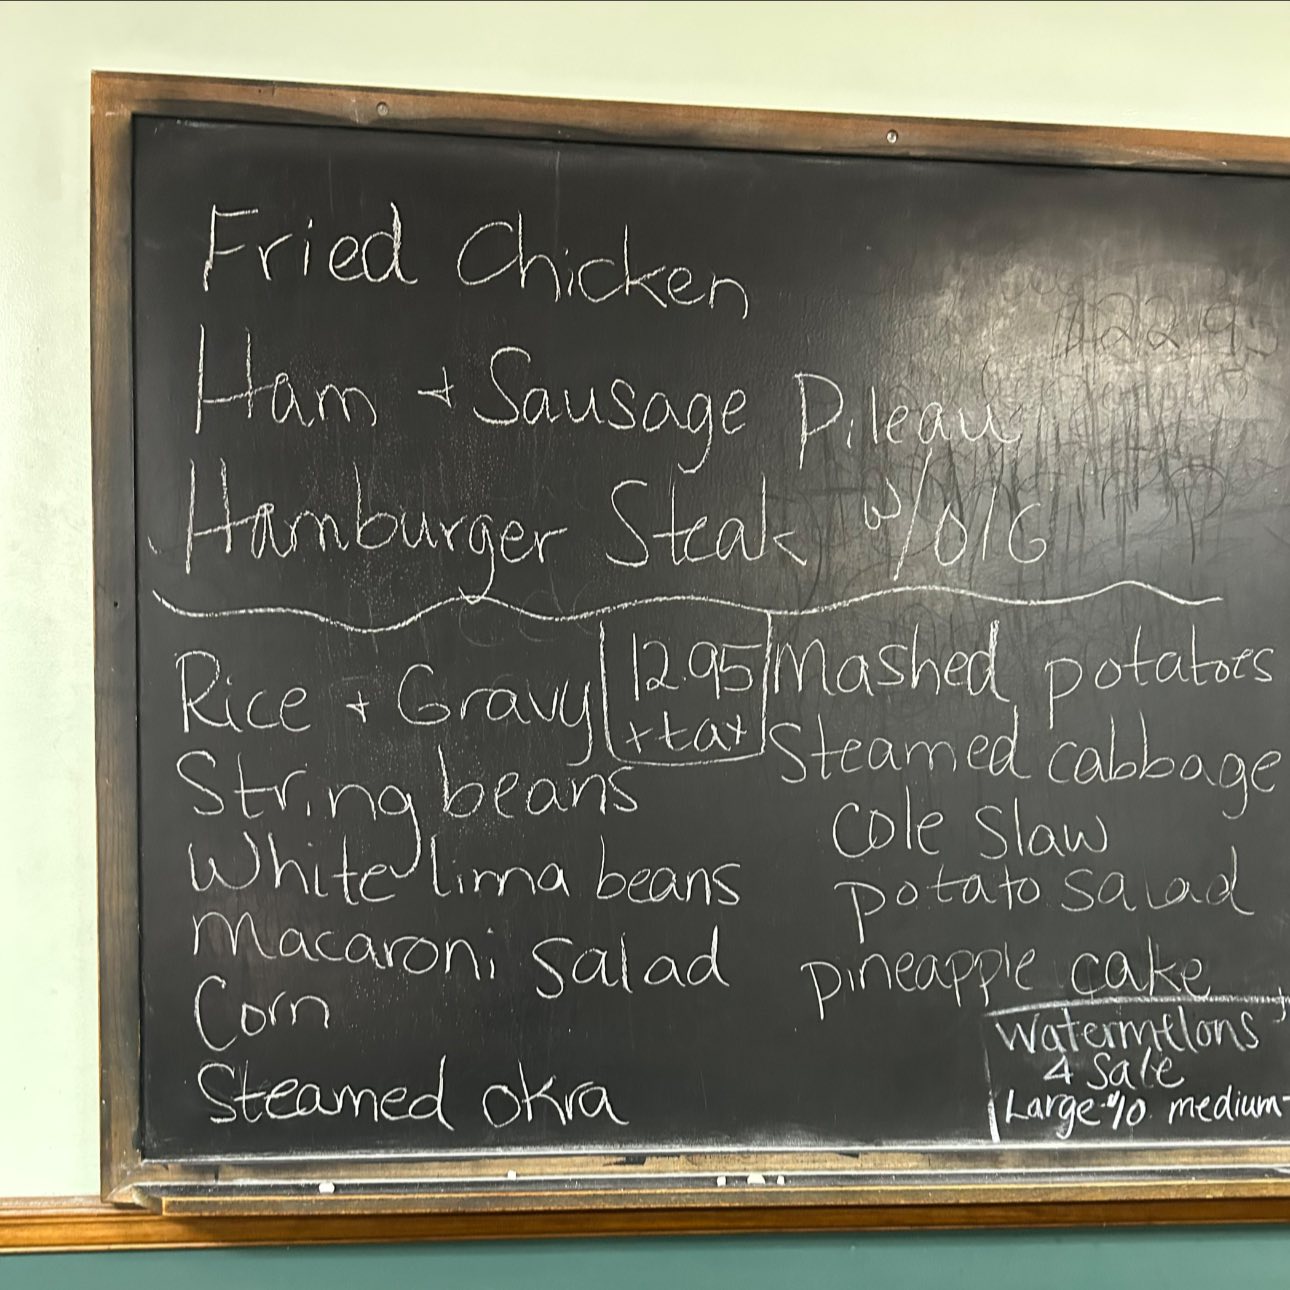 Fried Chicken
Ham + Sausage Pileau
Hamburger Steak w/O/G
Rice + Gravy
String beans
White lima beans
Macaroni Salad
Corn
Steamed okra
12.95
+ tax
Mashed potatoes
Steamed cabbage
Cole Slaw
potato salad
pineapple cake
Watermelons
4 Sale
Large-$10 medium-